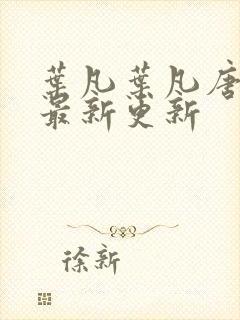 葉凡葉凡唐
最新更新
徐新